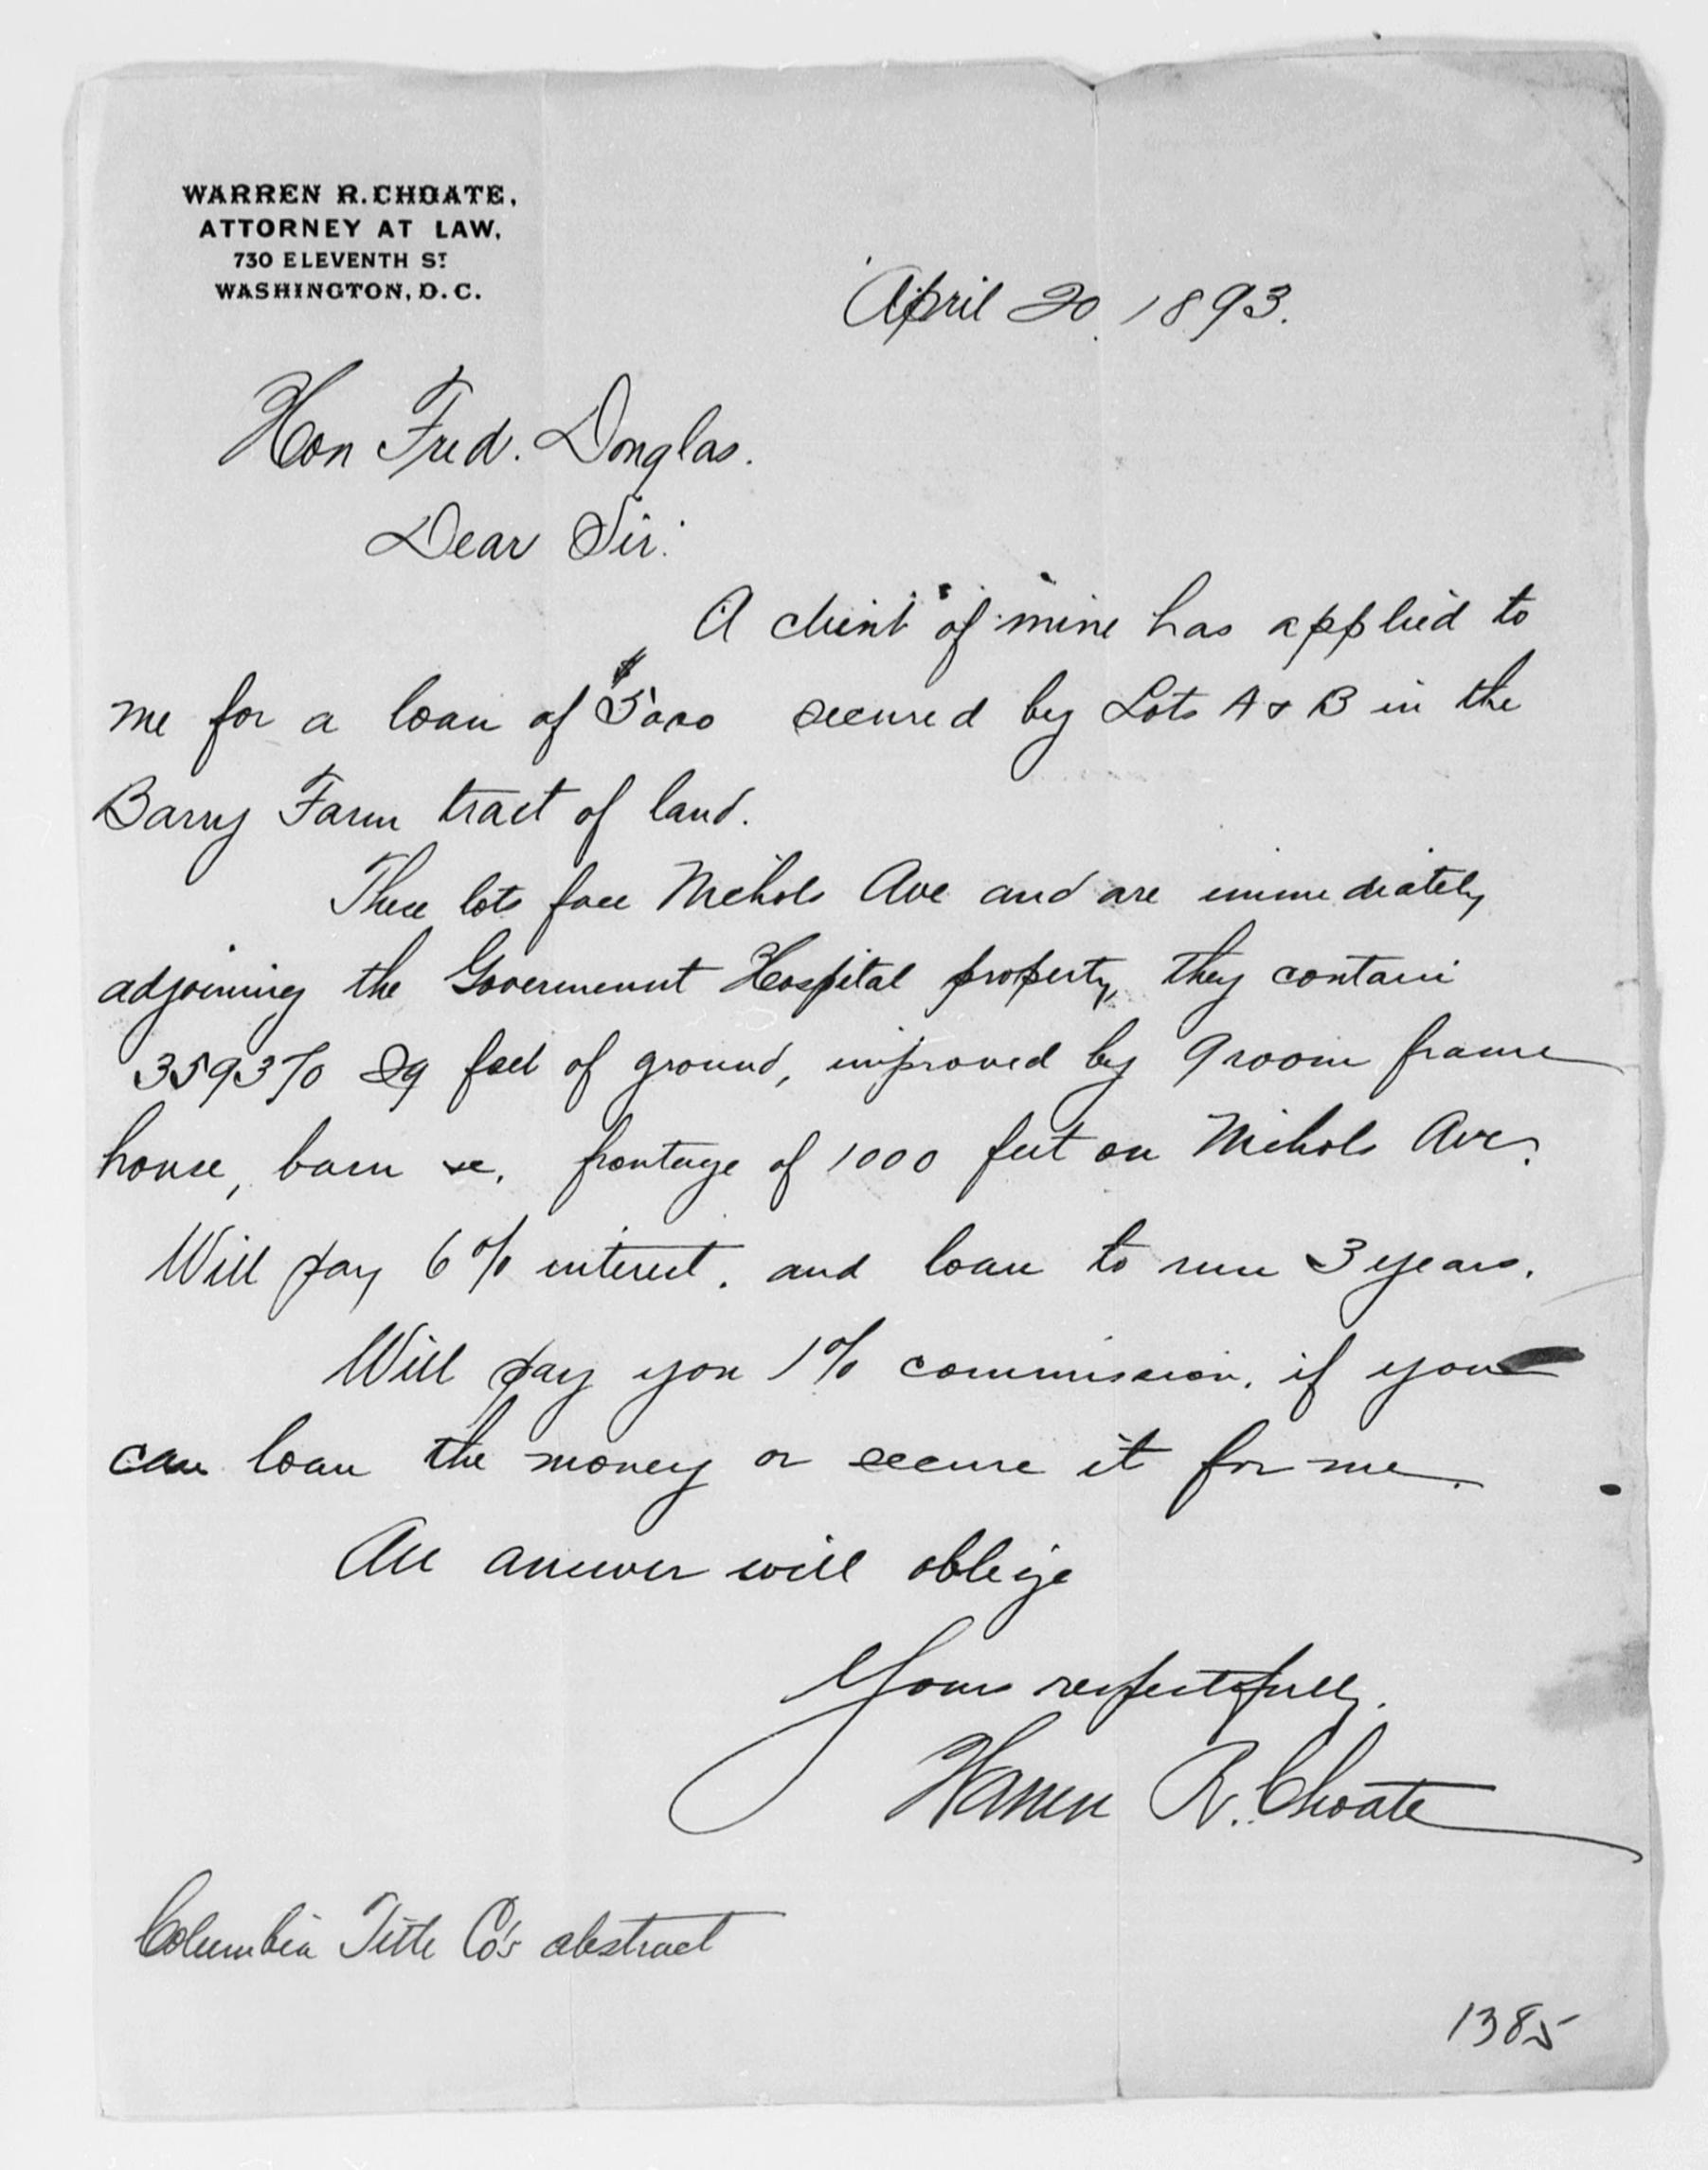 WARREN R. CHOATE,
ATTORNEY AT LAW,
730 ELEVENTH ST
WASHINGTON, D.C.
April 20. 1893.
Hon Fred. Douglas.
Dear Sir:
A client of mine has applied to
me for a loan of $5000 secured by Lots A & B in the
Barry Farm tract of land.
These lots face Nichols Ave and are immediately
adjoining the Government Hospital property, they contain
359370 Sq feet of ground, improved by 9 room frame
house, barn &c. frontage of 1000 feet on Nichols Ave.
Will pay 6% interest. and loan to run 3 years.
Will pay you 1% commission. if you
can loan the money or secure it for me.
An answer will oblige
Yours respectfully.
Warren R. Choate
Columbia Title Co's abstract
1385